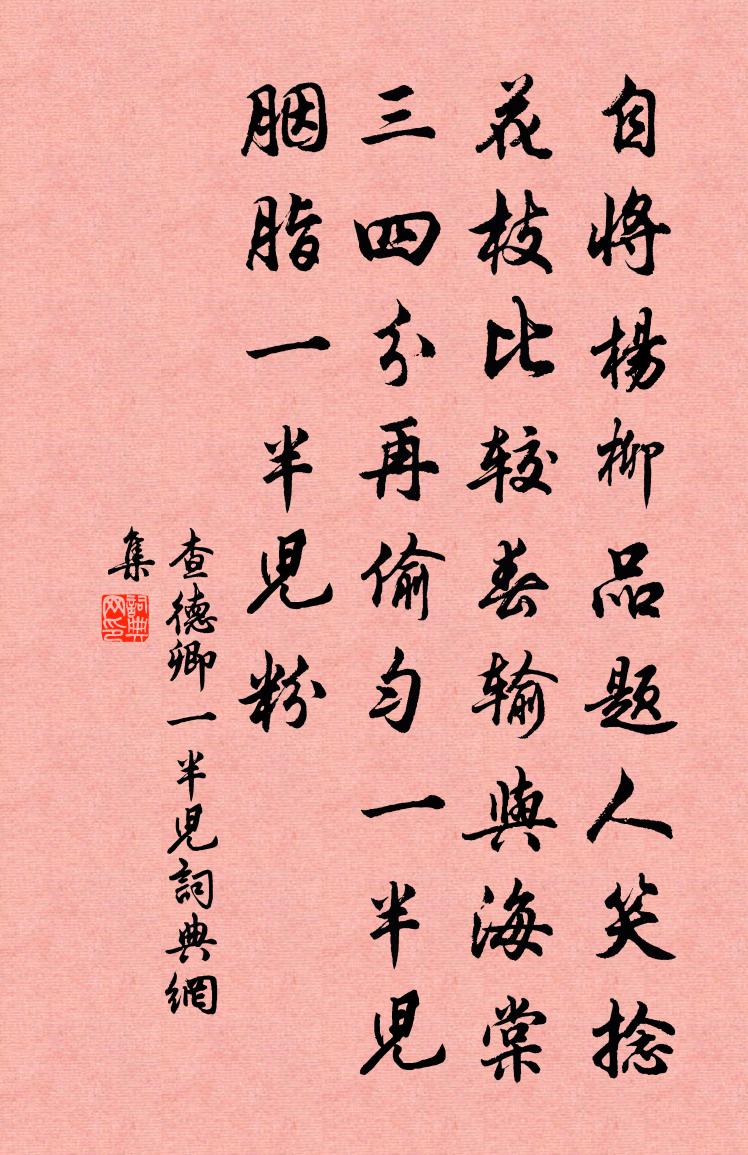 自将楊柳品题人笑捻
花枝比较春输與海棠
三四分再偷匀一半兒
胭脂一半兒粉
查德卿一半兒詞典網
集
詞典网印